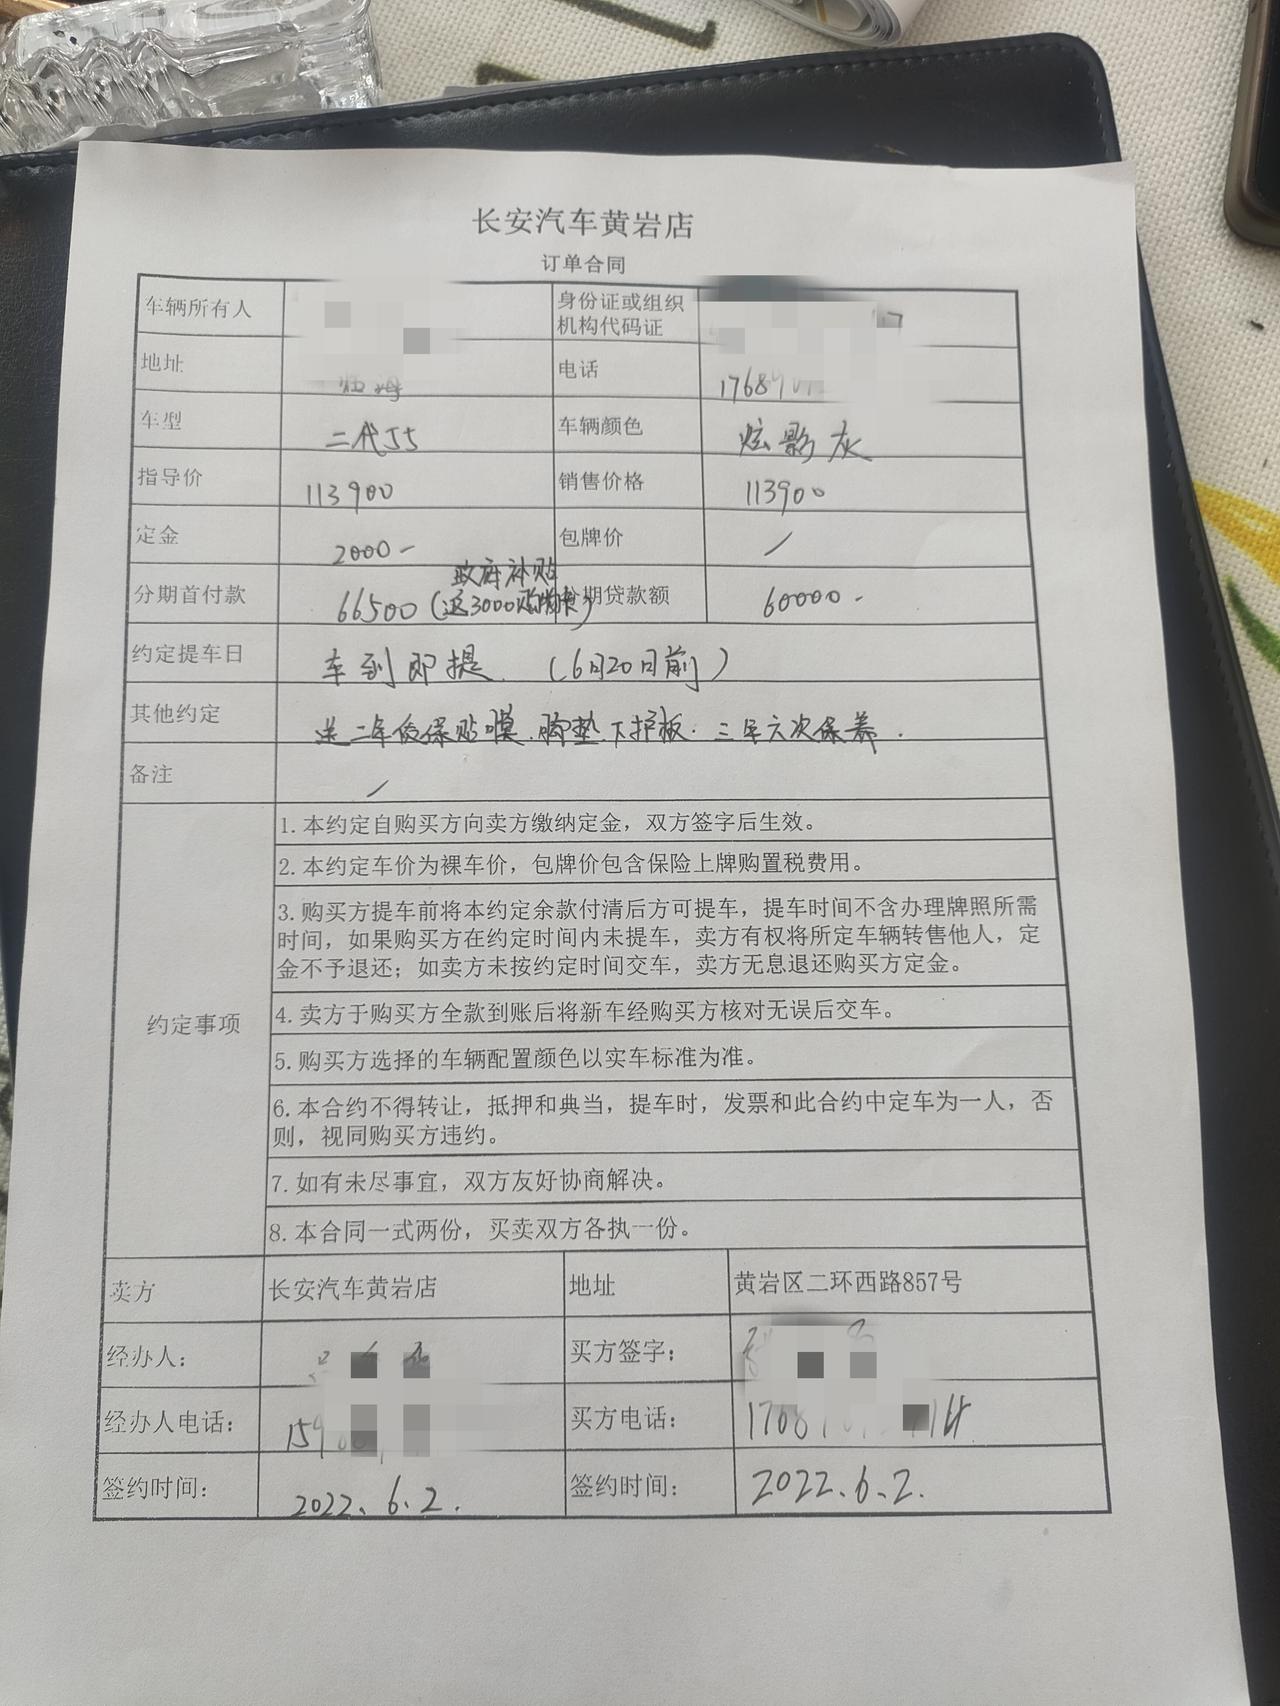 长安汽车黄岩店
订单合同
车辆所有人
身份证或组织
机构代码证
地址
临海
电话
车型
二代55
车辆颜色
炫影灰
指导价
113900
销售价格
113900
定金
2000-
包牌价
/
分期首付款
66500(送3000购物卡)
政府补贴
分期贷款额
60000-
约定提车日
车到即提.(6月20日前)
其他约定
送二年 保贴膜.脚垫.下护板.三年六次保养.
备注
/
约定事项
1.本约定自购买方向卖方缴纳定金，双方签字后生效。
2.本约定车价为裸车价，包牌价包含保险上牌购置税费用。
3.购买方提车前将本约定余款付清后方可提车，提车时间不含办理牌照所需
时间，如果购买方在约定时间内未提车，卖方有权将所定车辆转售他人，定
金不予退还；如卖方未按约定时间交车，卖方无息退还购买方定金。
4.卖方于购买方全款到账后将新车经购买方核对无误后交车。
5.购买方选择的车辆配置颜色以实车标准为准。
6.本合约不得转让，抵押和典当，提车时，发票和此合约中定车为一人，否
则，视同购买方违约。
7.如有未尽事宜，双方友好协商解决。
8.本合同一式两份，买卖双方各执一份。
卖方
长安汽车黄岩店
地址
黄岩区二环西路857号
经办人：
买方签字：
经办人电话：
买方电话：
签约时间：
2022.6.2.
签约时间：
2022.6.2.